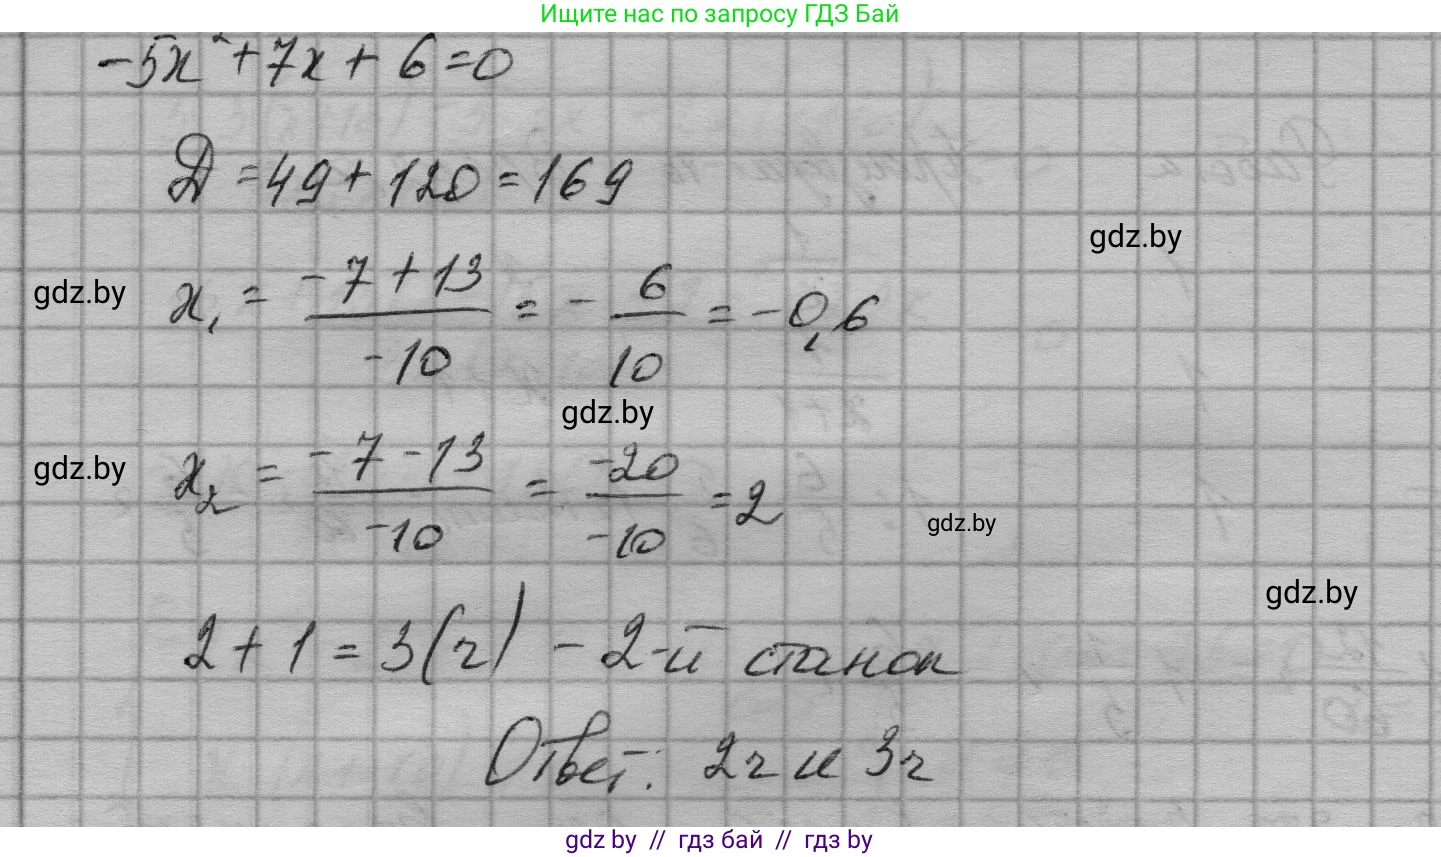 Ищите нас по запросу ГДЗ Бай
-5x² + 7x + 6 = 0
Д = 49 + 120 = 169
gdz.by
gdz.by
x₁ = (-7 + 13)/(-10) = - 6/10 = -0,6
gdz.by
gdz.by
x₂ = (-7 - 13)/(-10) = (-20)/(-10) = 2
gdz.by
gdz.by
2 + 1 = 3 (ч) - 2-й станок
Ответ: 2ч и 3ч
gdz.by // гдз бай // гдз by